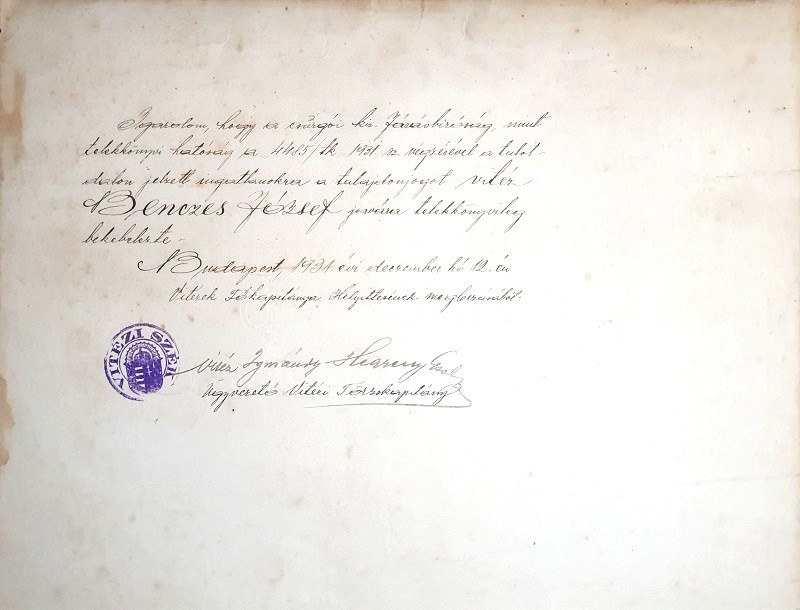 Igazolom, hogy a csurgói kir. Járásbíróság, mint
telekkönyvi hatóság a 4485/tk. 1931. sz. végzésével a túlol-
dalon jelzett ingatlanokra a tulajdonjogot vitéz
Benczés József javára telekkönyvileg
bekebelezte.-
Budapest, 1931. évi december hó 12.-én
Vitézek Főkapitánya Helyettesének megbízásából:
VITÉZI SZÉK
vitéz Igmándy-Hegyessy
ügyvezető Vitézi Törzskapitány